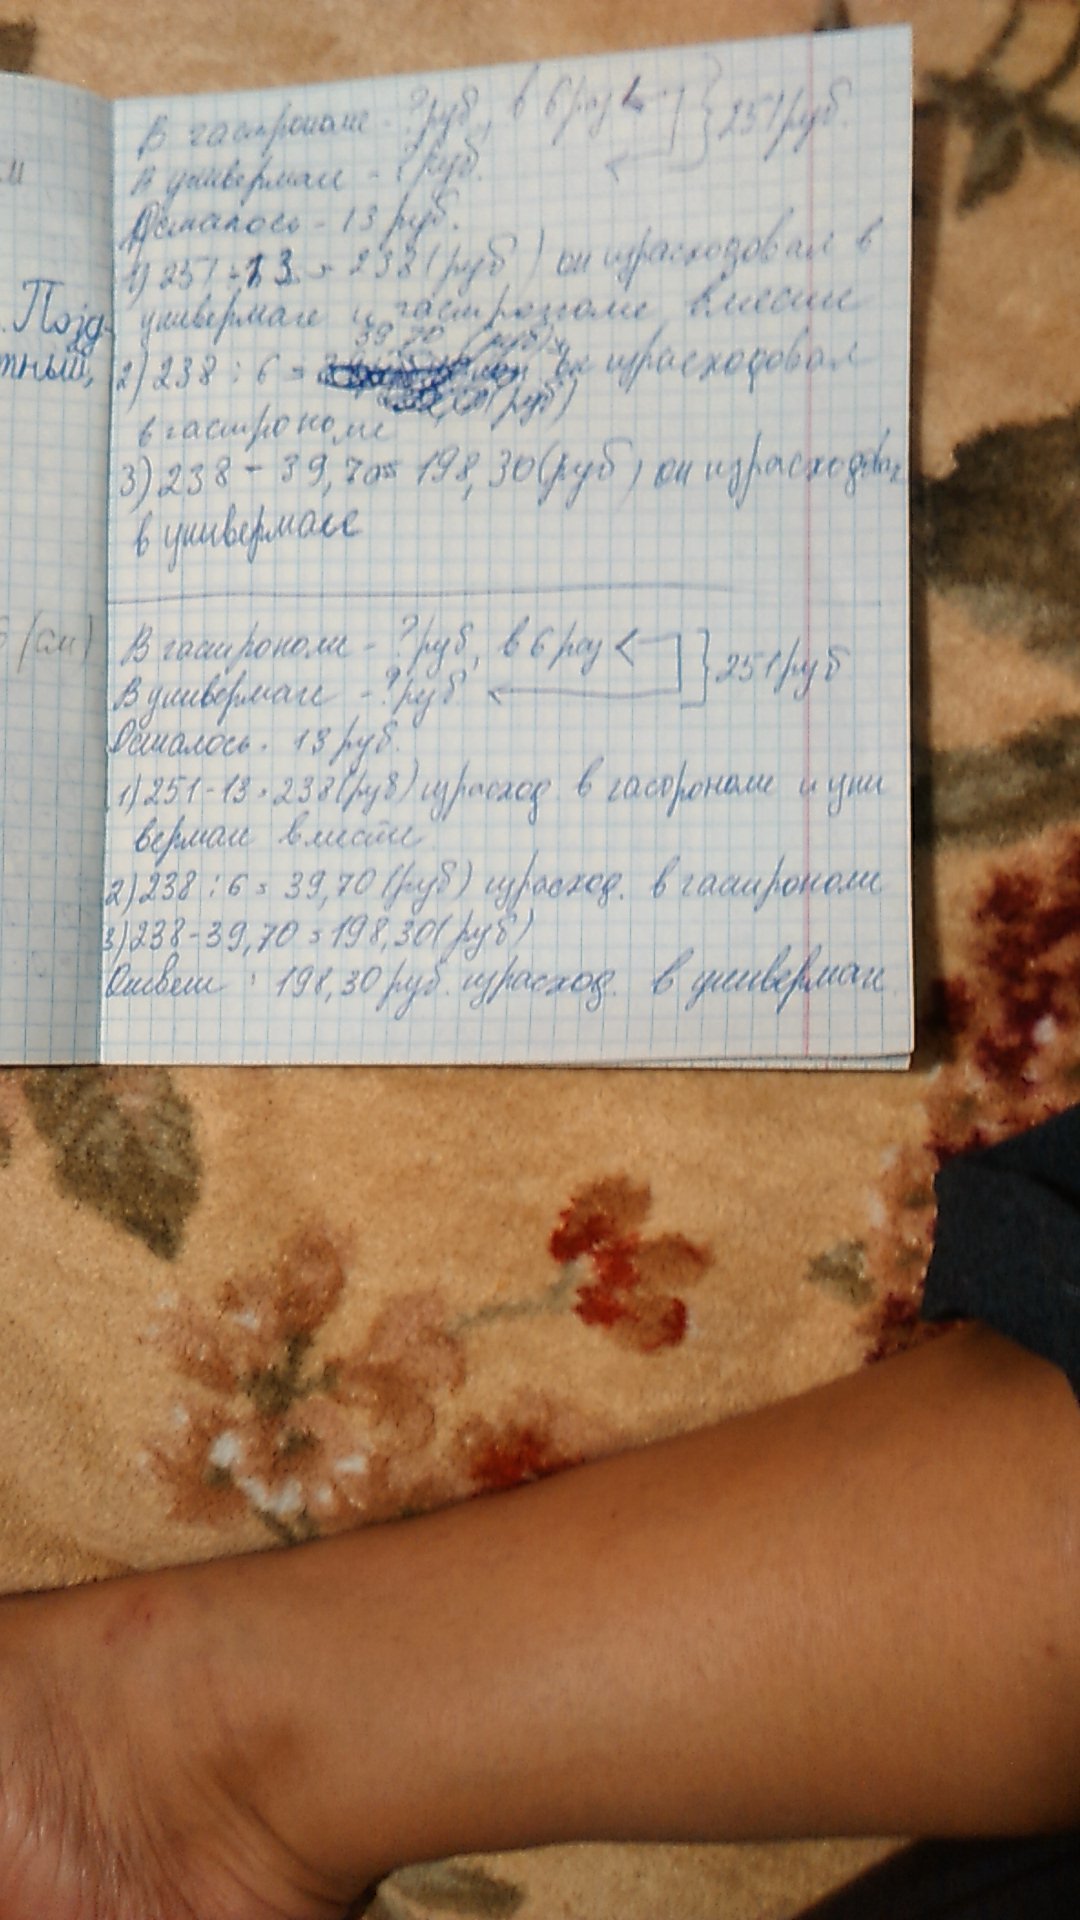 м
. Позд-
тный,
6 (см)
В гастрономе - ? руб, в 6 раз < } 251 руб.
В универмаге - ? руб.
Осталось - 13 руб.
1) 251 - 13 = 238 (руб) он израсходовал в
универмаге и гастрономе вместе
39,70 (руб)
2) 238 : 6 = он израсходовал
(руб)
в гастрономе
3) 238 - 39,70 = 198,30 (руб) он израсходовал
в универмаге
В гастрономе - ? руб, в 6 раз < } 251 руб
В универмаге - ? руб
Осталось - 13 руб.
1) 251 - 13 = 238 (руб) израсход. в гастрономе и уни
вермаге вместе
2) 238 : 6 = 39,70 (руб) израсход. в гастрономе
3) 238 - 39,70 = 198,30 (руб)
Ответ : 198,30 руб. израсход. в универмаге.